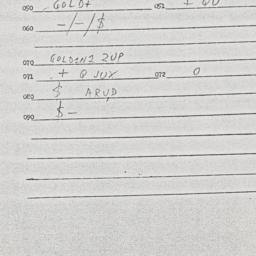 050 GOLD+ 052
060 -/-/$
070 GOLDEN1 2UP
071 .+ Q JUX 072 0
080 $ ARUD
090 $-